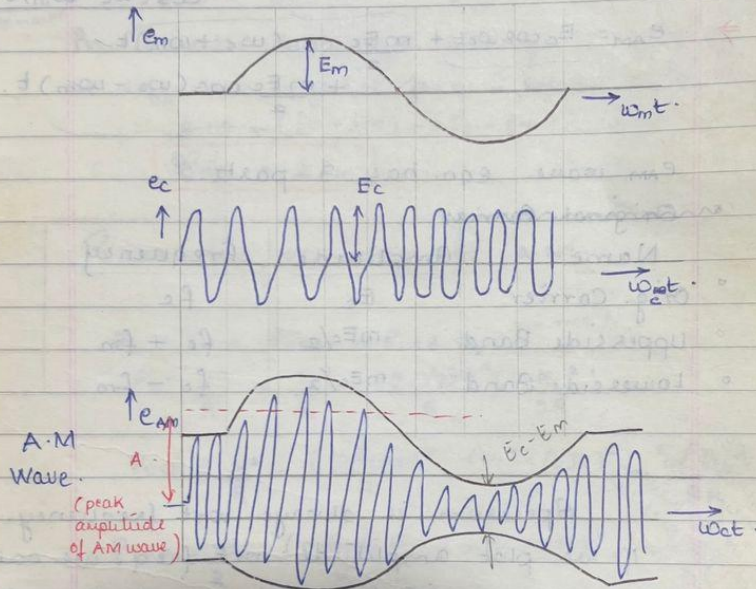 em
Em
ωmt.
ec
Ec
ωct.
eAM
A.M
Wave.
A
(peak
amplitude
of AM wave)
Ec-Em
ωct.